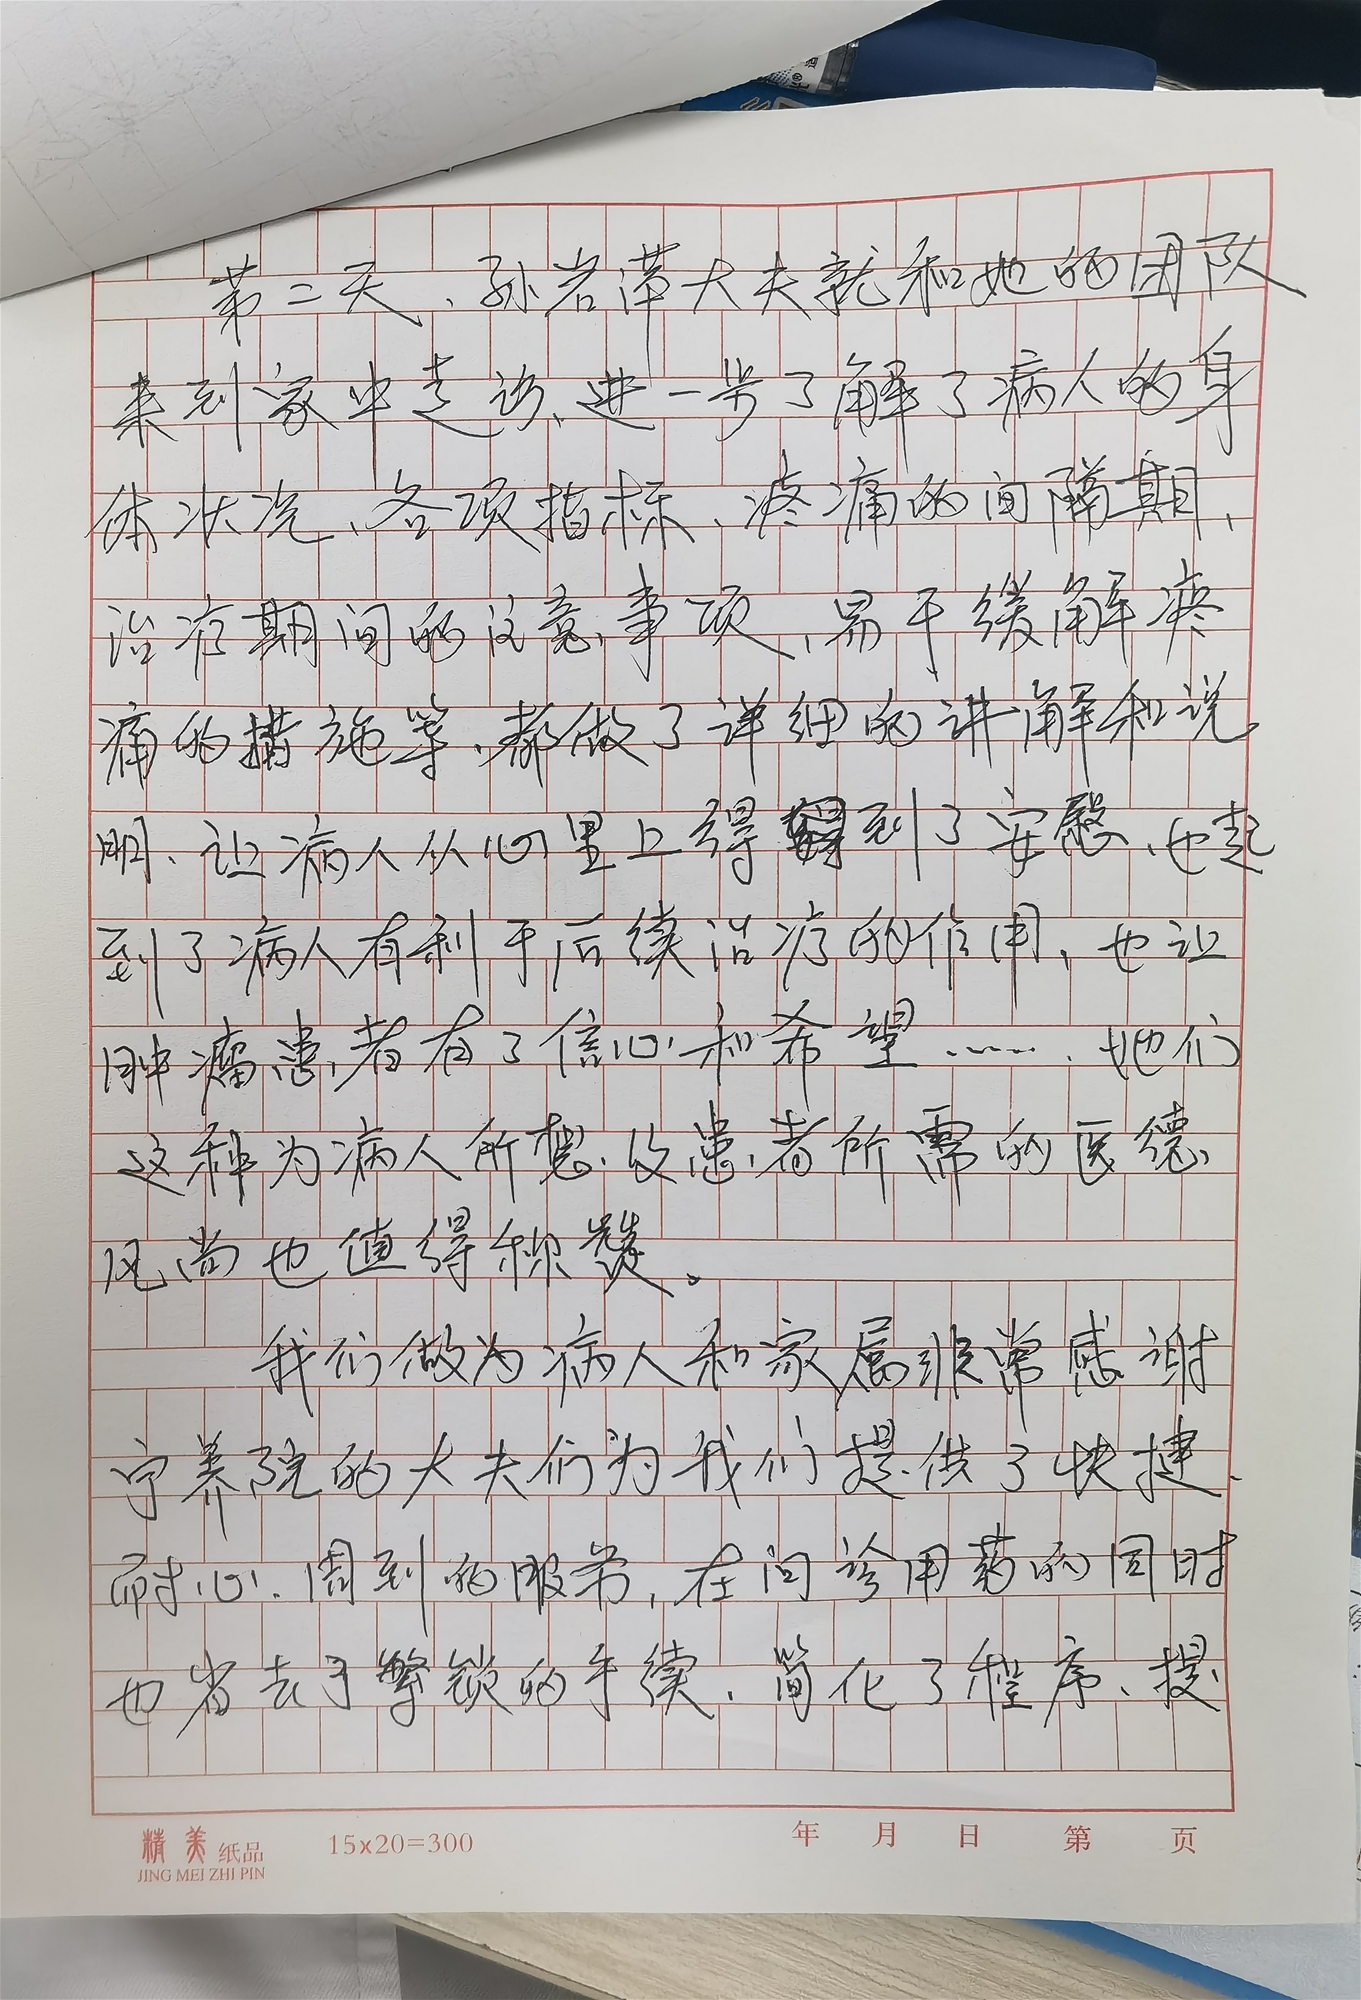 第二天、孙岩萍大夫就和她的团队
来到家中走访、进一步了解了病人的身
体状况、各项指标、疼痛的间隔期、
治疗期间的注意事项、易于缓解疼
痛的措施等、都做了详细的讲解和说
明、让病人从心里上得到了安慰、也起
到了病人有利于后续治疗的作用，也让
肿瘤患者有了信心和希望……、她们
这种为病人所想、及患者所需的医德
风尚也值得称赞。
我们做为病人和家属非常感谢
宁养院的大夫们为我们提供了快捷、
耐心、周到的服务，在问诊用药的同时
也省去了繁锁的手续、简化了程序、提
精美纸品 15x20=300 年 月 日 第 页
JING MEI ZHI PIN